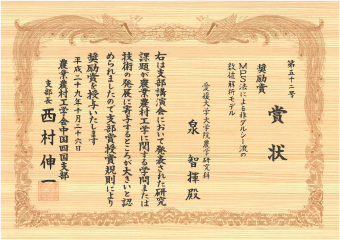 第五十二号
賞状
奨励賞
MPS法による非ダルシー流の
数値解析モデル
愛媛大学大学院農学研究科
泉 智揮殿
右は支部講演会において発表された研究
課題が農業農村工学に関する学問または
技術の発展に寄与するところが大きいと認
められましたので支部賞授賞規則により
奨励賞を授与いたします
平成二十九年十月二十六日
農業農村工学会中国四国支部
支部長 西村伸一